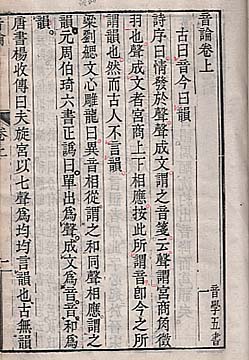 音論卷上
古曰音今曰韻
詩序曰情發於聲聲成文謂之音箋云聲謂宮商角徵
羽也聲成文者宮商上下相應按此所謂音即今之所
謂韻也然而古人不言韻
梁劉勰文心雕龍曰異音相從謂之和同聲相應謂之
韻元周伯琦六書正譌曰單出為聲成文為音音和為
韻
唐書楊收傳曰夫旋宮以七聲為均均言韻也古無韻
音學五書
卷上